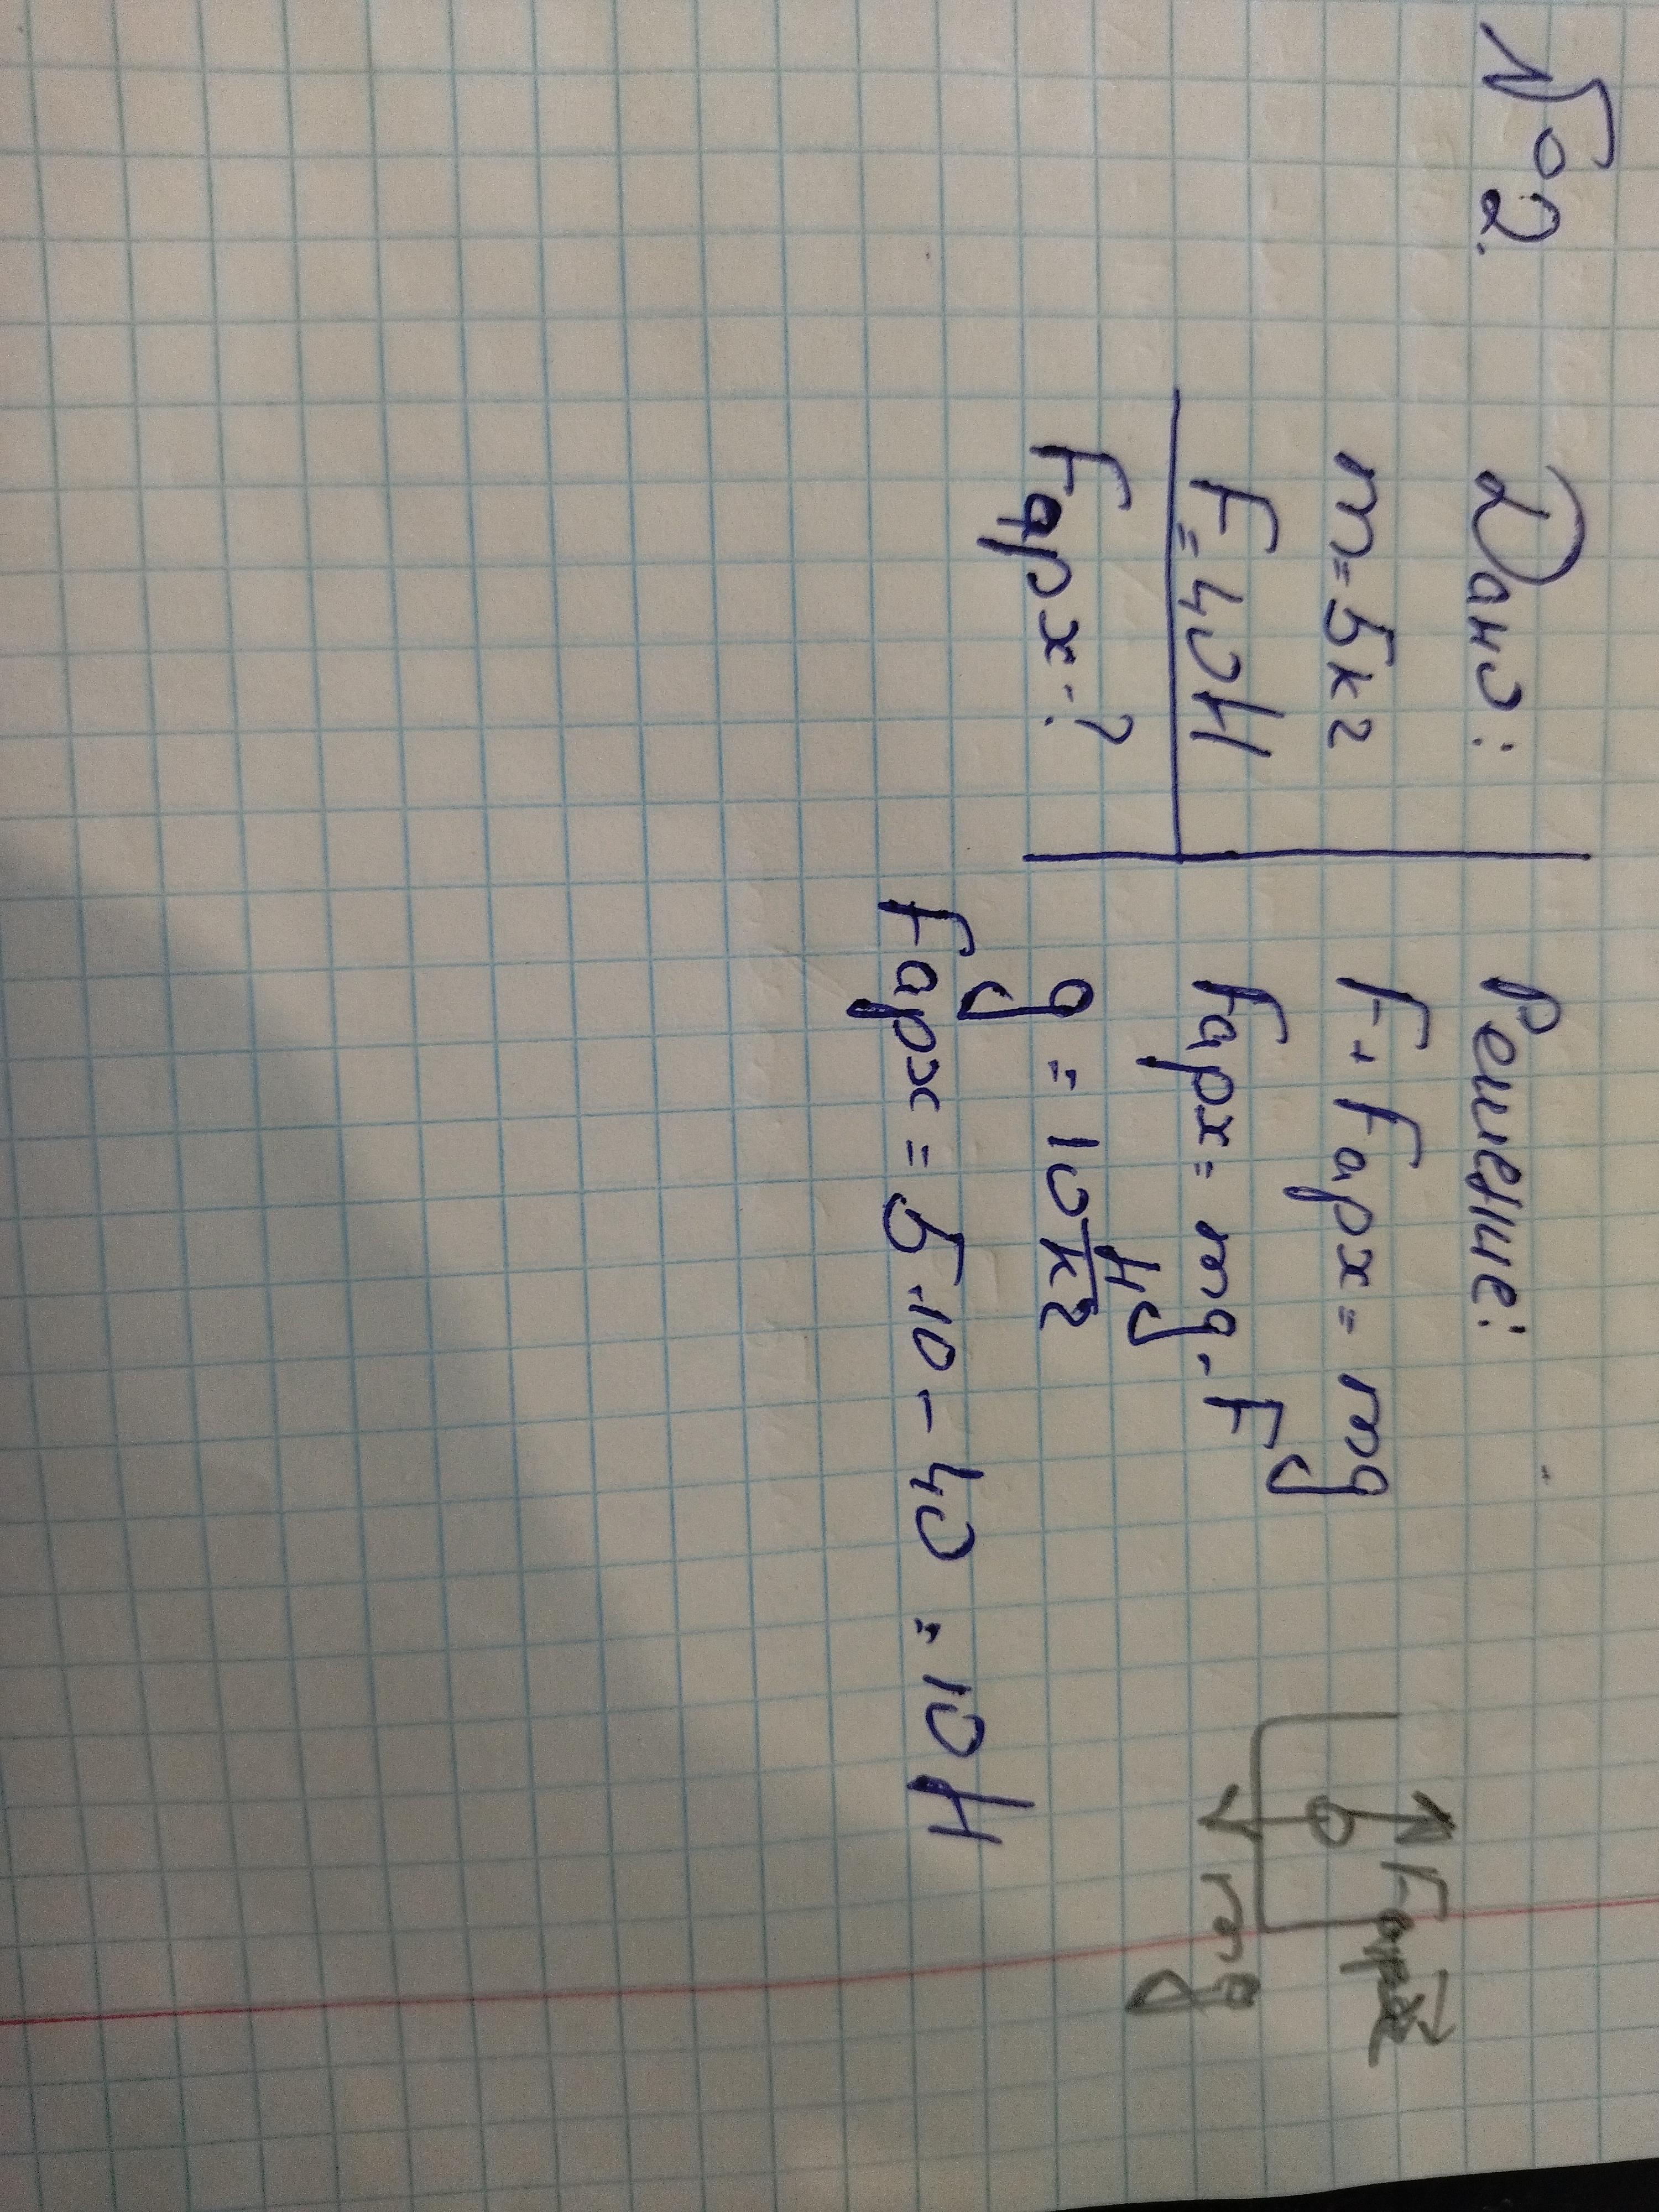 №2.
Дано:
m=5кг
F=40Н
Fарх-?
Решение:
F+Fарх=mg
Fарх=mg-F
g=10 Н/кг
Fарх=5·10-40=10Н
Fарх
mg